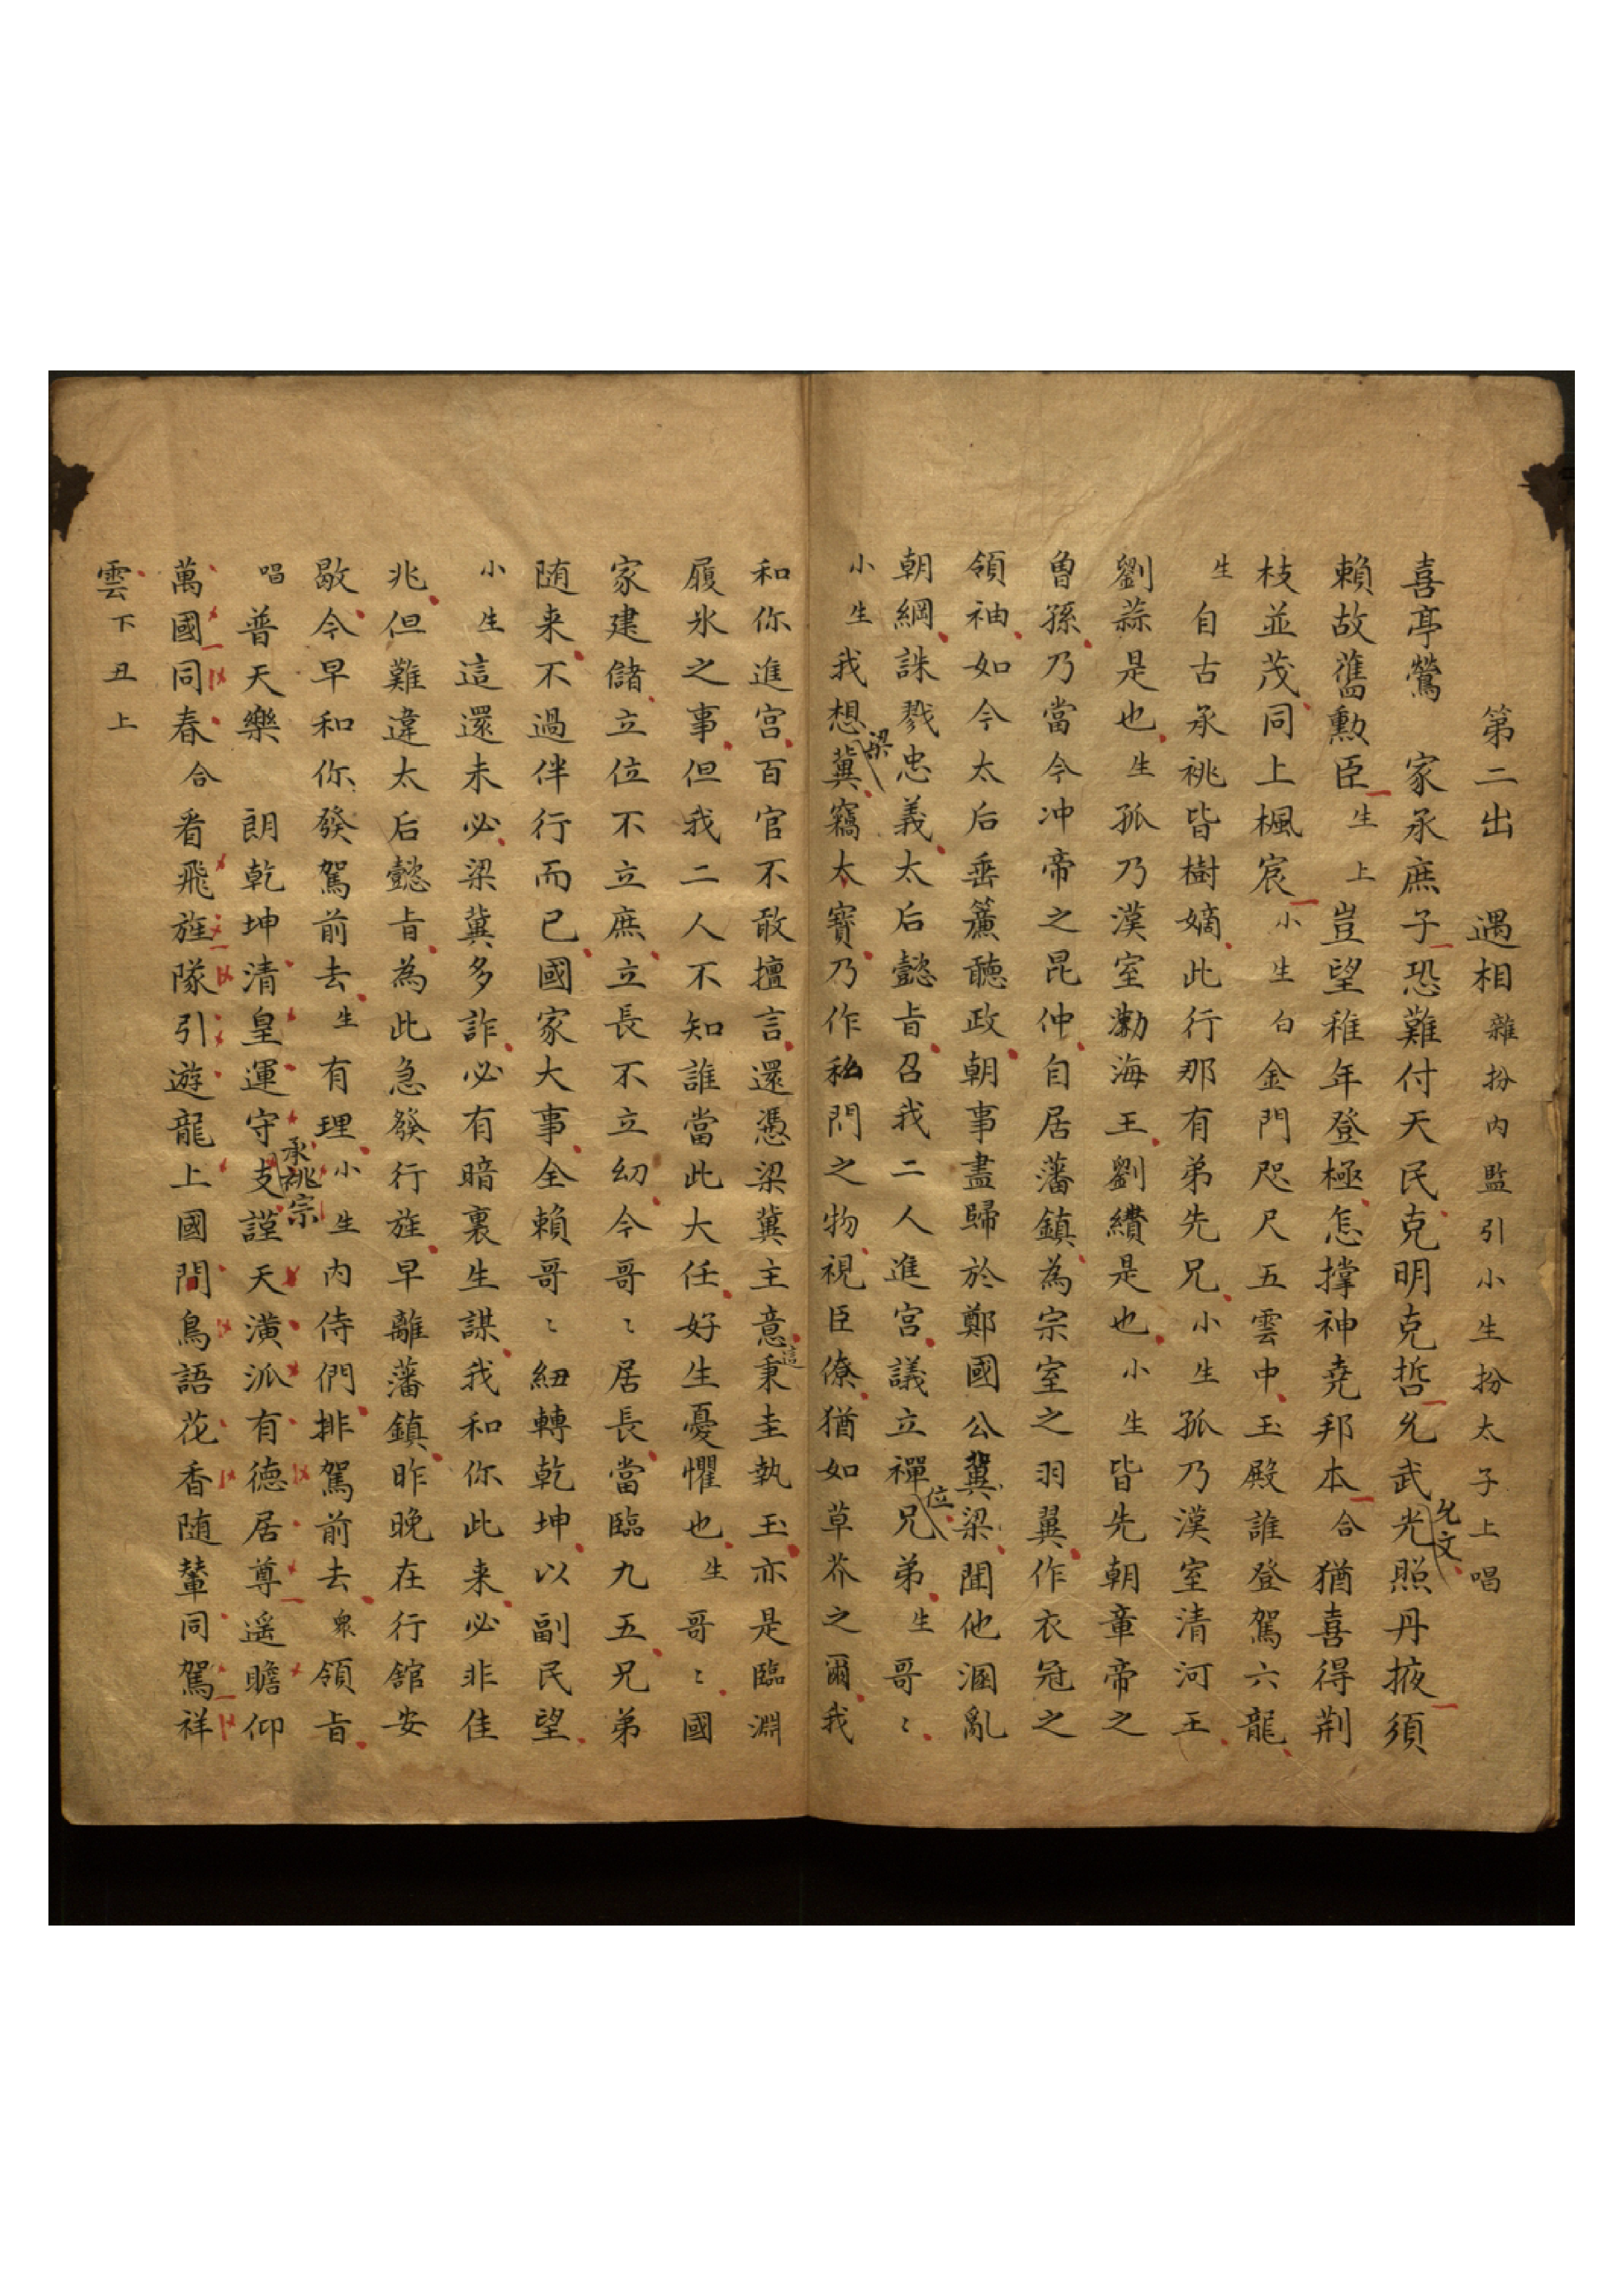 第二出　遇相　雜扮內監引小生扮太子上唱
喜亭鶯　家承庶子恐難付天民克明克哲允武允文光照丹掖須
賴故舊勳臣生上豈望稚年登極怎撐神堯邦本合猶喜得荆
枝並茂同上楓宸小生白金門咫尺五雲中玉殿誰登駕六龍
生自古承祧皆樹嫡此行那有弟先兄小生孤乃漢室清河王
劉蒜是也生孤乃漢室渤海王劉纘是也小生皆先朝章帝之
曾孫乃當今冲帝之昆仲自居藩鎮為宗室之羽翼作衣冠之
領袖如今太后垂簾聽政朝事盡歸於鄭國公冀梁閨他溷亂
朝綱誅戮忠義太后懿旨召我二人進宮議立禪位兄弟生哥〻
小生我想梁冀竊太寶乃作私門之物視臣僚猶如草芥之爾我
和你進宮百官不敢擅言還憑梁冀主意這秉圭執玉亦是臨淵
履氷之事但我二人不知誰當此大任好生憂懼也生哥〻國
家建儲立位不立庶立長不立幼今哥〻居長當臨九五兄弟
随来不過伴行而已國家大事全賴哥〻紐轉乾坤以副民望
小生這還未必梁冀多詐必有暗裏生謀我和你此来必非佳
兆但難違太后懿旨為此急發行旌早離藩鎮昨晚在行舘安
歇今早和你發駕前去生有理小生內侍們排駕前去衆領旨
唱普天樂　朗乾坤清皇運守承祧宗支謹天潢派有德居尊遥瞻仰
萬國同春合看飛旌隊引遊龍上國問鳥語花香随輦同駕祥
雲下丑上